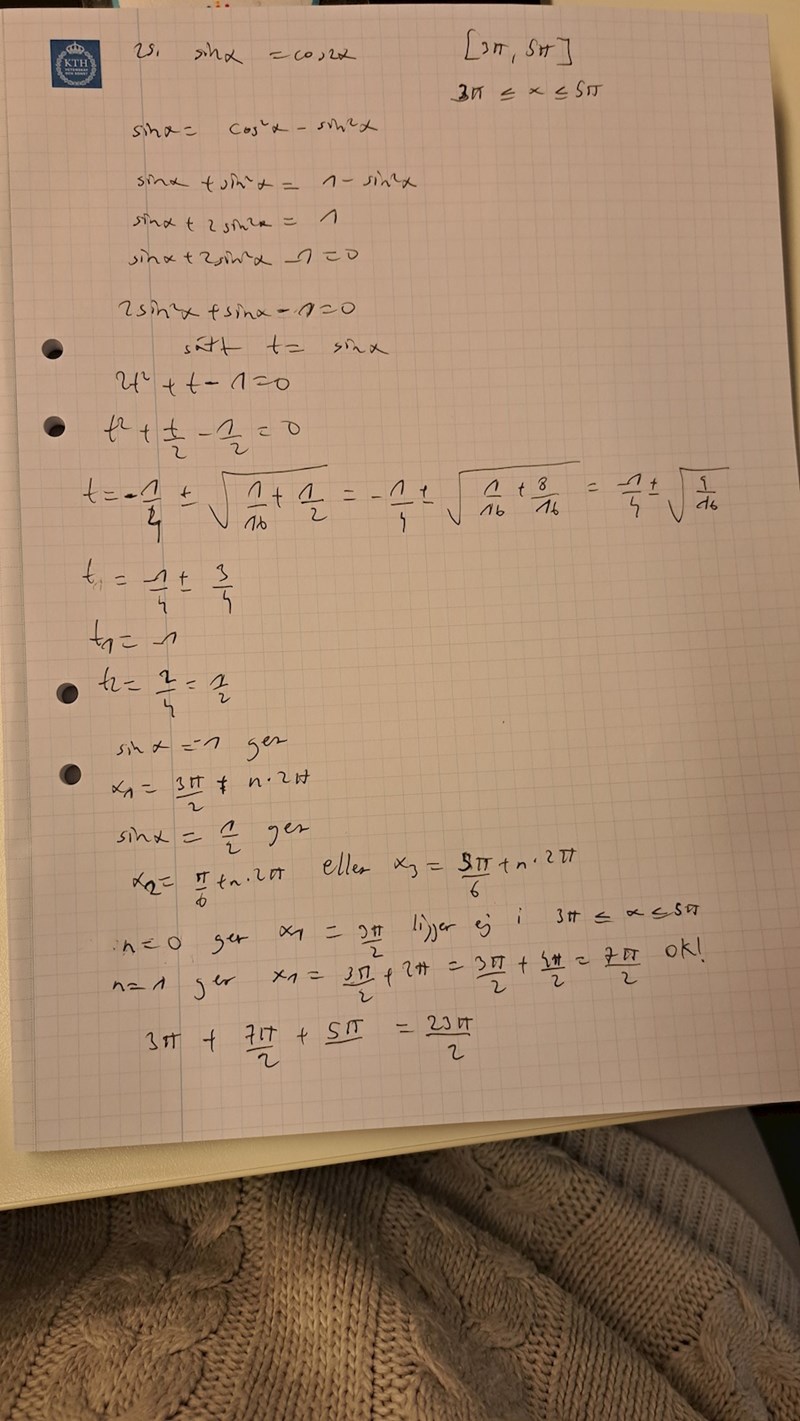 KTH
25. sinx = cos2x [3π, 5π]
3π ≤ x ≤ 5π
sinx = cos²x - sin²x
sinx + sin²x = 1 - sin²x
sinx + 2sin²x = 1
sinx + 2sin²x - 1 = 0
2sin²x + sinx - 1 = 0
sätt t = sinx
2t² + t - 1 = 0
t² + t/2 - 1/2 = 0
t = -1/4 ± √(1/16 + 1/2) = -1/4 ± √(1/16 + 8/16) = -1/4 ± √(9/16)
t₁ = -1/4 ± 3/4
t₁ = -1
t₂ = 2/4 = 1/2
sinx = -1 ger
x₁ = 3π/2 + n·2π
sinx = 1/2 ger
x₂ = π/6 + n·2π eller x₃ = 5π/6 + n·2π
n = 0 ger x₁ = 3π/2 ligger ej i 3π ≤ x ≤ 5π
n = 1 ger x₁ = 3π/2 + 2π = 3π/2 + 4π/2 = 7π/2 OK!
3π + 7π/2 + 5π = 23π/2